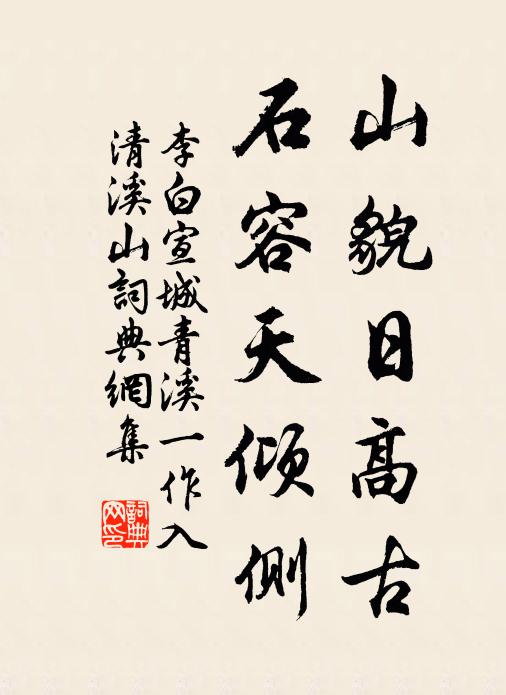 山貌日高古
石容天傾側
李白宣城青溪一作入
清溪山詞典網集
詞典
网印